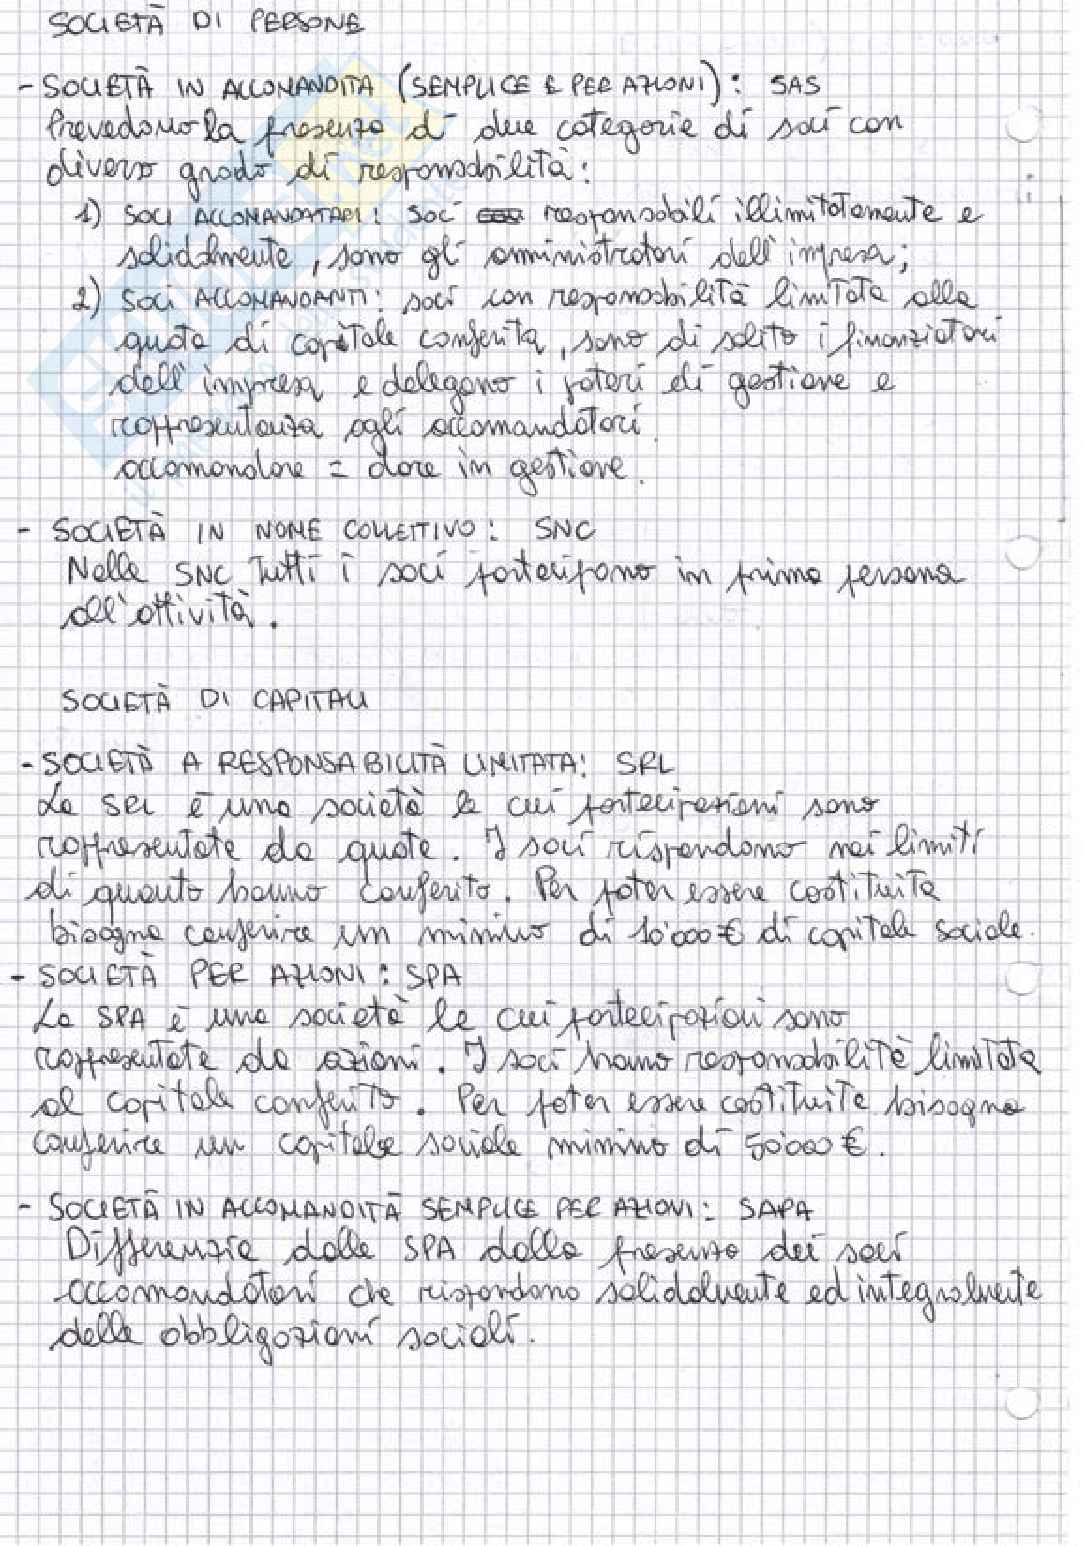 SOCIETÀ DI PERSONE
- SOCIETÀ IN ACCOMANDITA (SEMPLICE E PER AZIONI): SAS
Prevedono la presenza di due categorie di soci con
diverso grado di responsabilità:
1) SOCI ACCOMANDATARI: soci responsabili illimitatamente e
solidalmente, sono gli amministratori dell'impresa;
2) SOCI ACCOMANDANTI: soci con responsabilità limitata alla
quota di capitale conferita, sono di solito i finanziatori
dell'impresa e delegano i poteri di gestione e
rappresentanza agli accomandatari.
accomandare = dare in gestione.
- SOCIETÀ IN NOME COLLETTIVO: SNC
Nelle SNC tutti i soci partecipano in prima persona
all'attività.
SOCIETÀ DI CAPITALI
- SOCIETÀ A RESPONSABILITÀ LIMITATA: SRL
La SRL è una società le cui partecipazioni sono
rappresentate da quote. I soci rispondono nei limiti
di quanto hanno conferito. Per poter essere costituita
bisogna conferire un minimo di 10'000 € di capitale sociale.
- SOCIETÀ PER AZIONI: SPA
La SPA è una società le cui partecipazioni sono
rappresentate da azioni. I soci hanno responsabilità limitata
al capitale conferito. Per poter essere costituita bisogna
conferire un capitale sociale minimo di 50'000 €.
- SOCIETÀ IN ACCOMANDITÀ SEMPLICE PER AZIONI: SAPA
Differenzia dalla SPA dalla presenza dei soci
accomandatari che rispondono solidalmente ed integralmente
delle obbligazioni sociali.